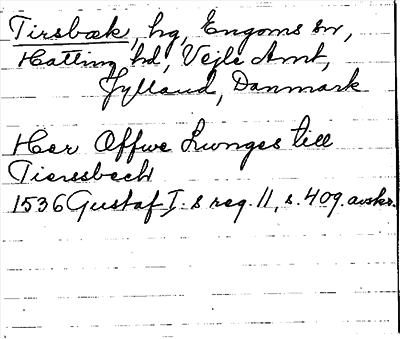 Tirsbæk, hg, Engoms sn,
Hatting hd, Vejle Amt,
Jylland, Danmark
Her Offwe Lwnges till
Tiersbech
1536 Gustaf I.s reg. 11, s. 409. avskr.